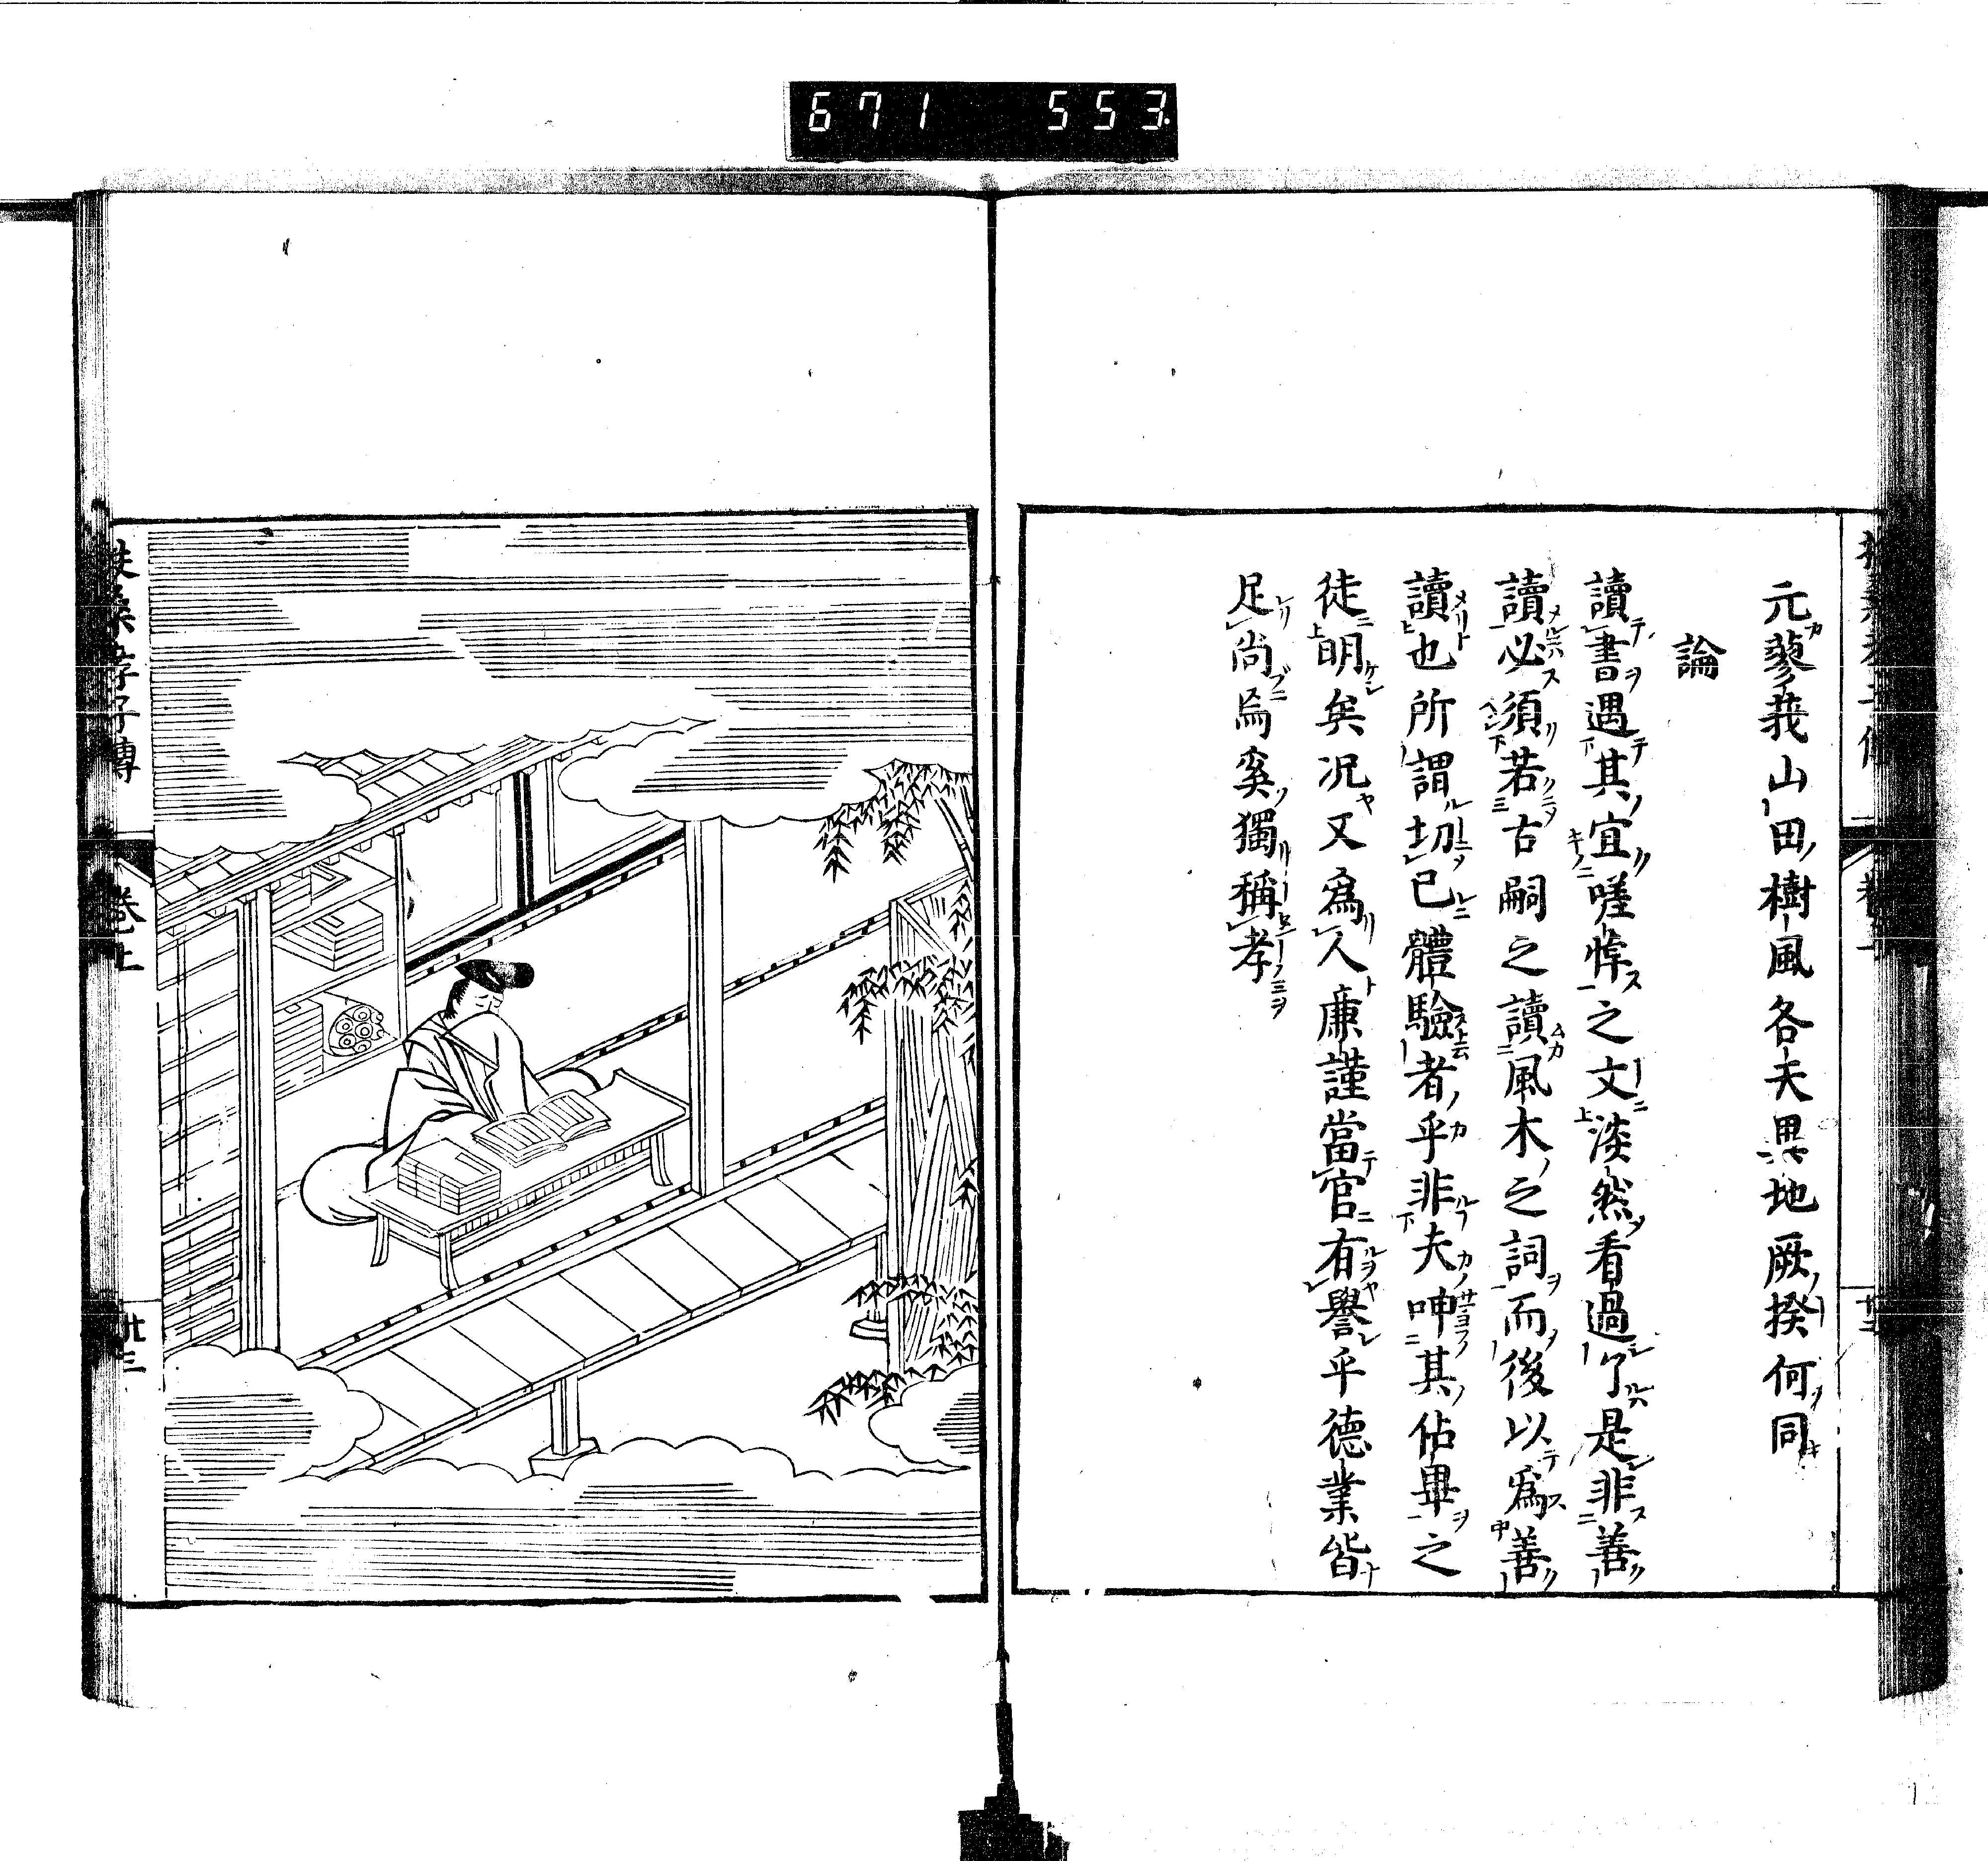 671 553
元蓼莪山田樹風各天異地厥揆何同
論
讀書遇其宜嗟悼之文淡然看過了是非善
讀必須若古嗣之讀風木之詞而後以爲善
讀也所謂切己體驗者乎非夫呻其佔畢之
徒明矣況又爲人廉謹當官有譽乎德業皆
足尚焉奚獨稱孝
扶桑孝子傳
卷上
廿三